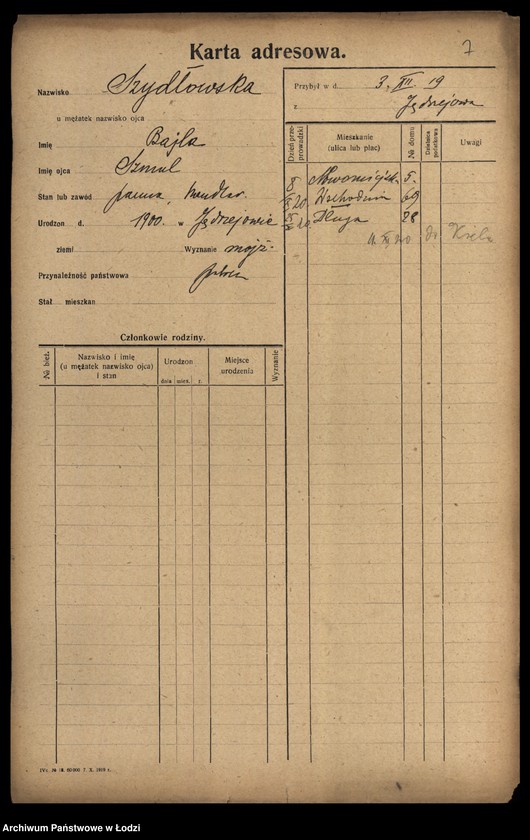 7
Karta adresowa.
Nazwisko Szydłowska
u mężatek nazwisko ojca
Imię Bajla
Imię ojca Szmul
Stan lub zawód panna, handlar.
Urodzon d. 1900. w Jędrzejowie
ziemi Wyznanie mojż.
Przynależność państwowa polska
Stał. mieszkan
Przybył w d. 3. XII. 19
z Jędrzejowa
Dzień przeprowadzki
Mieszkanie
(ulica lub plac)
№ domu
Dzielnica podatkowa
Uwagi
5.
20 Wschodnia 69
20 Długa 28
do Kielc
Członkowie rodziny.
№ bież.
Nazwisko i imię
(u mężatek nazwisko ojca)
i stan
Urodzon
dnia mies. r.
Miejsce
urodzenia
Wyznanie
Archiwum Państwowe w Łodzi